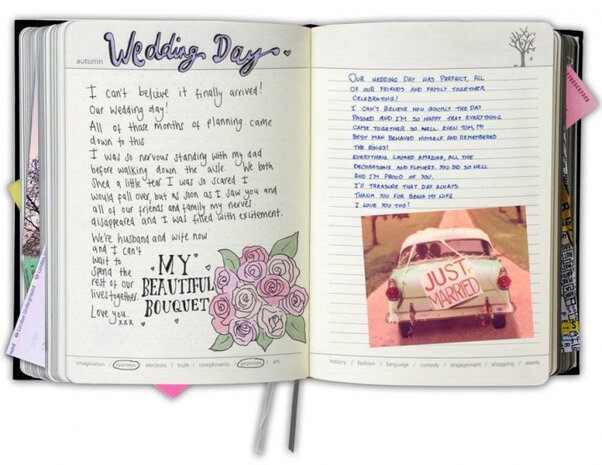 autumn
Wedding Day
I can't believe it finally arrived!
Our wedding day!
All of those months of planning came
down to this
I was so nervous standing with my dad
before walking down the aisle. We both
shed a little tear I was so scared I
would fall over, but as soon as I saw you and
all of our friends and family my nerves
disappeared and I was filled with excitement.
We're husband and wife now
and I can't
wait to
spend the
rest of our
lives together.
Love you.
xxx
MY
BEAUTIFUL
BOUQUET
imagination / journeys / elections / truth / compliments / promises / art
OUR WEDDING DAY WAS PERFECT, ALL
OF OUR FRIENDS AND FAMILY TOGETHER
CELEBRATING!
I CAN'T BELIEVE HOW QUICKLY THE DAY
PASSED AND I'M SO HAPPY THAT EVERYTHING
CAME TOGETHER SO WELL. EVEN TOM, MY
BEST MAN BEHAVED HIMSELF AND REMEMBERED
THE RINGS!
EVERYTHING LOOKED AMAZING, ALL THE
DECORATIONS AND FLOWERS. YOU DID SO WELL
AND I'M PROUD OF YOU.
I'LL TREASURE THAT DAY ALWAYS.
THANK YOU FOR BEING MY WIFE.
I LOVE YOU TOO!
JUST
MARRIED
history / fashion / language / comedy / engagement / shopping / assets